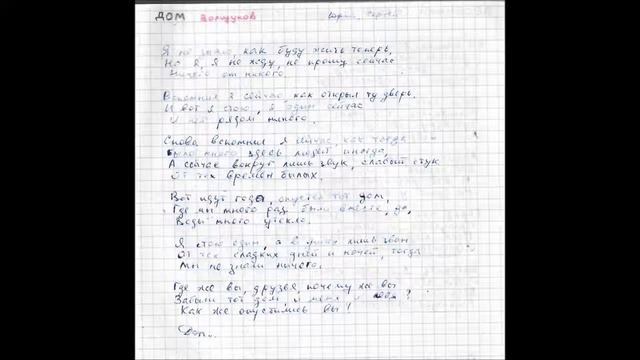 ДОМ Волшуков Юрий
Я не знаю, как буду жить теперь,
Но я, я не жду, не прошу сейчас
Ничего от никого.
Вспомнил я сейчас как открыл ту дверь.
И вот я стою, я один сейчас
И нет рядом никого.
Снова вспомнил я сейчас, как тогда
Было много здесь людей иногда,
А сейчас вокруг лишь звук, слабый стук
От тех времён былых.
Вот идут года, опустел тот дом,
Где мы много раз были вместе, да,
Воды много утекло.
Я стою один, а в ушах лишь звон
От тех сладких дней и ночей, тогда
Мы не знали ничего.
Где же вы, друзья, почему же вы
Забыли тот дом, и меня, и ?
Как же опустились вы!
Дом...